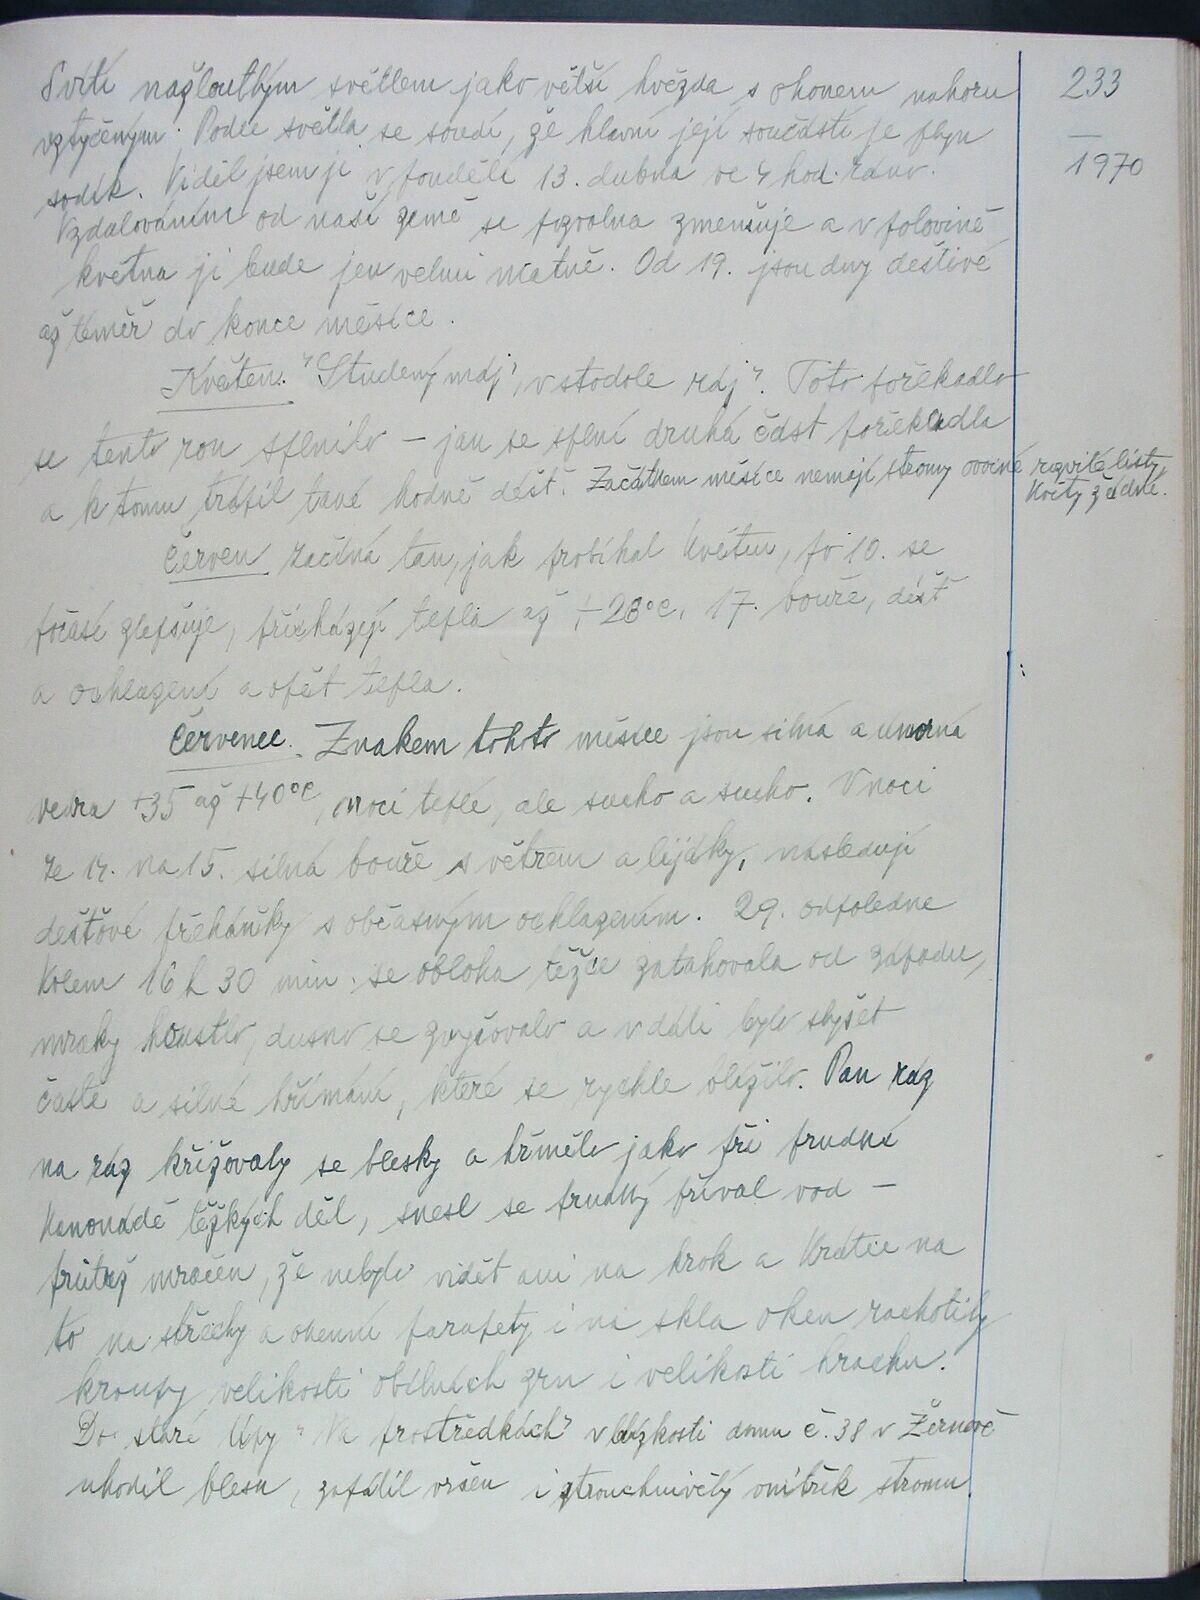 Svítí nažloutlým světlem jako větší hvězda s ohonem nahoru
vztyčeným. Podle světla se soudí, že hlavní její součástí je plyn
sodík. Viděl jsem ji v pondělí 13. dubna ve 4 hod. ráno.
Vzdalováním od naší země se pozvolna zmenšuje a v polovině
května ji bude jen velmi matně. Od 19. jsou dny deštivé
až téměř do konce měsíce.
Květen. "Studený máj, v stodole ráj". Toto pořekadlo
se tento rok splnilo – jak se splní druhá část pořekadla
a k tomu trápil také hodně déšť. Začátkem měsíce nemají stromy ovocné rozvité listy,
květy žádné.
Červen začíná tak, jak probíhal květen, po 10. se
počasí zlepšuje, přicházejí tepla až +28°C, 17. bouře, déšť
a ochlazení a opět tepla.
Červenec. Znakem tohoto měsíce jsou silná a úmorná
vedra +35 až +40°C, noci teplé, ale sucho a sucho. V noci
ze 14. na 15. silná bouře s větrem a lijáky, následují
dešťové přeháňky s občasným ochlazením. 29. odpoledne
kolem 16 h 30 min. se obloha těžce zatahovala od západu,
mraky houstlo, dusno se zvyšovalo a v dáli bylo slyšet
časté a silné hřímání, které se rychle blížilo. Pak ráz
na ráz křižovaly se blesky a hřmělo jako při prudké
kanonádě těžkých děl, snesl se prudký příval vod –
průtrž mračen, že nebylo vidět ani na krok a krátce na
to na střechy a okenní parapety i na skla oken rachotily
kroupy velikosti obilních zrn i velikosti hrachu.
Do staré lípy "Na prostředkách" v blízkosti domu č. 38 v Žernově
uhodil blesk, zapálil vršek i ztrouchnivělý vnitřek stromu.
233
1970